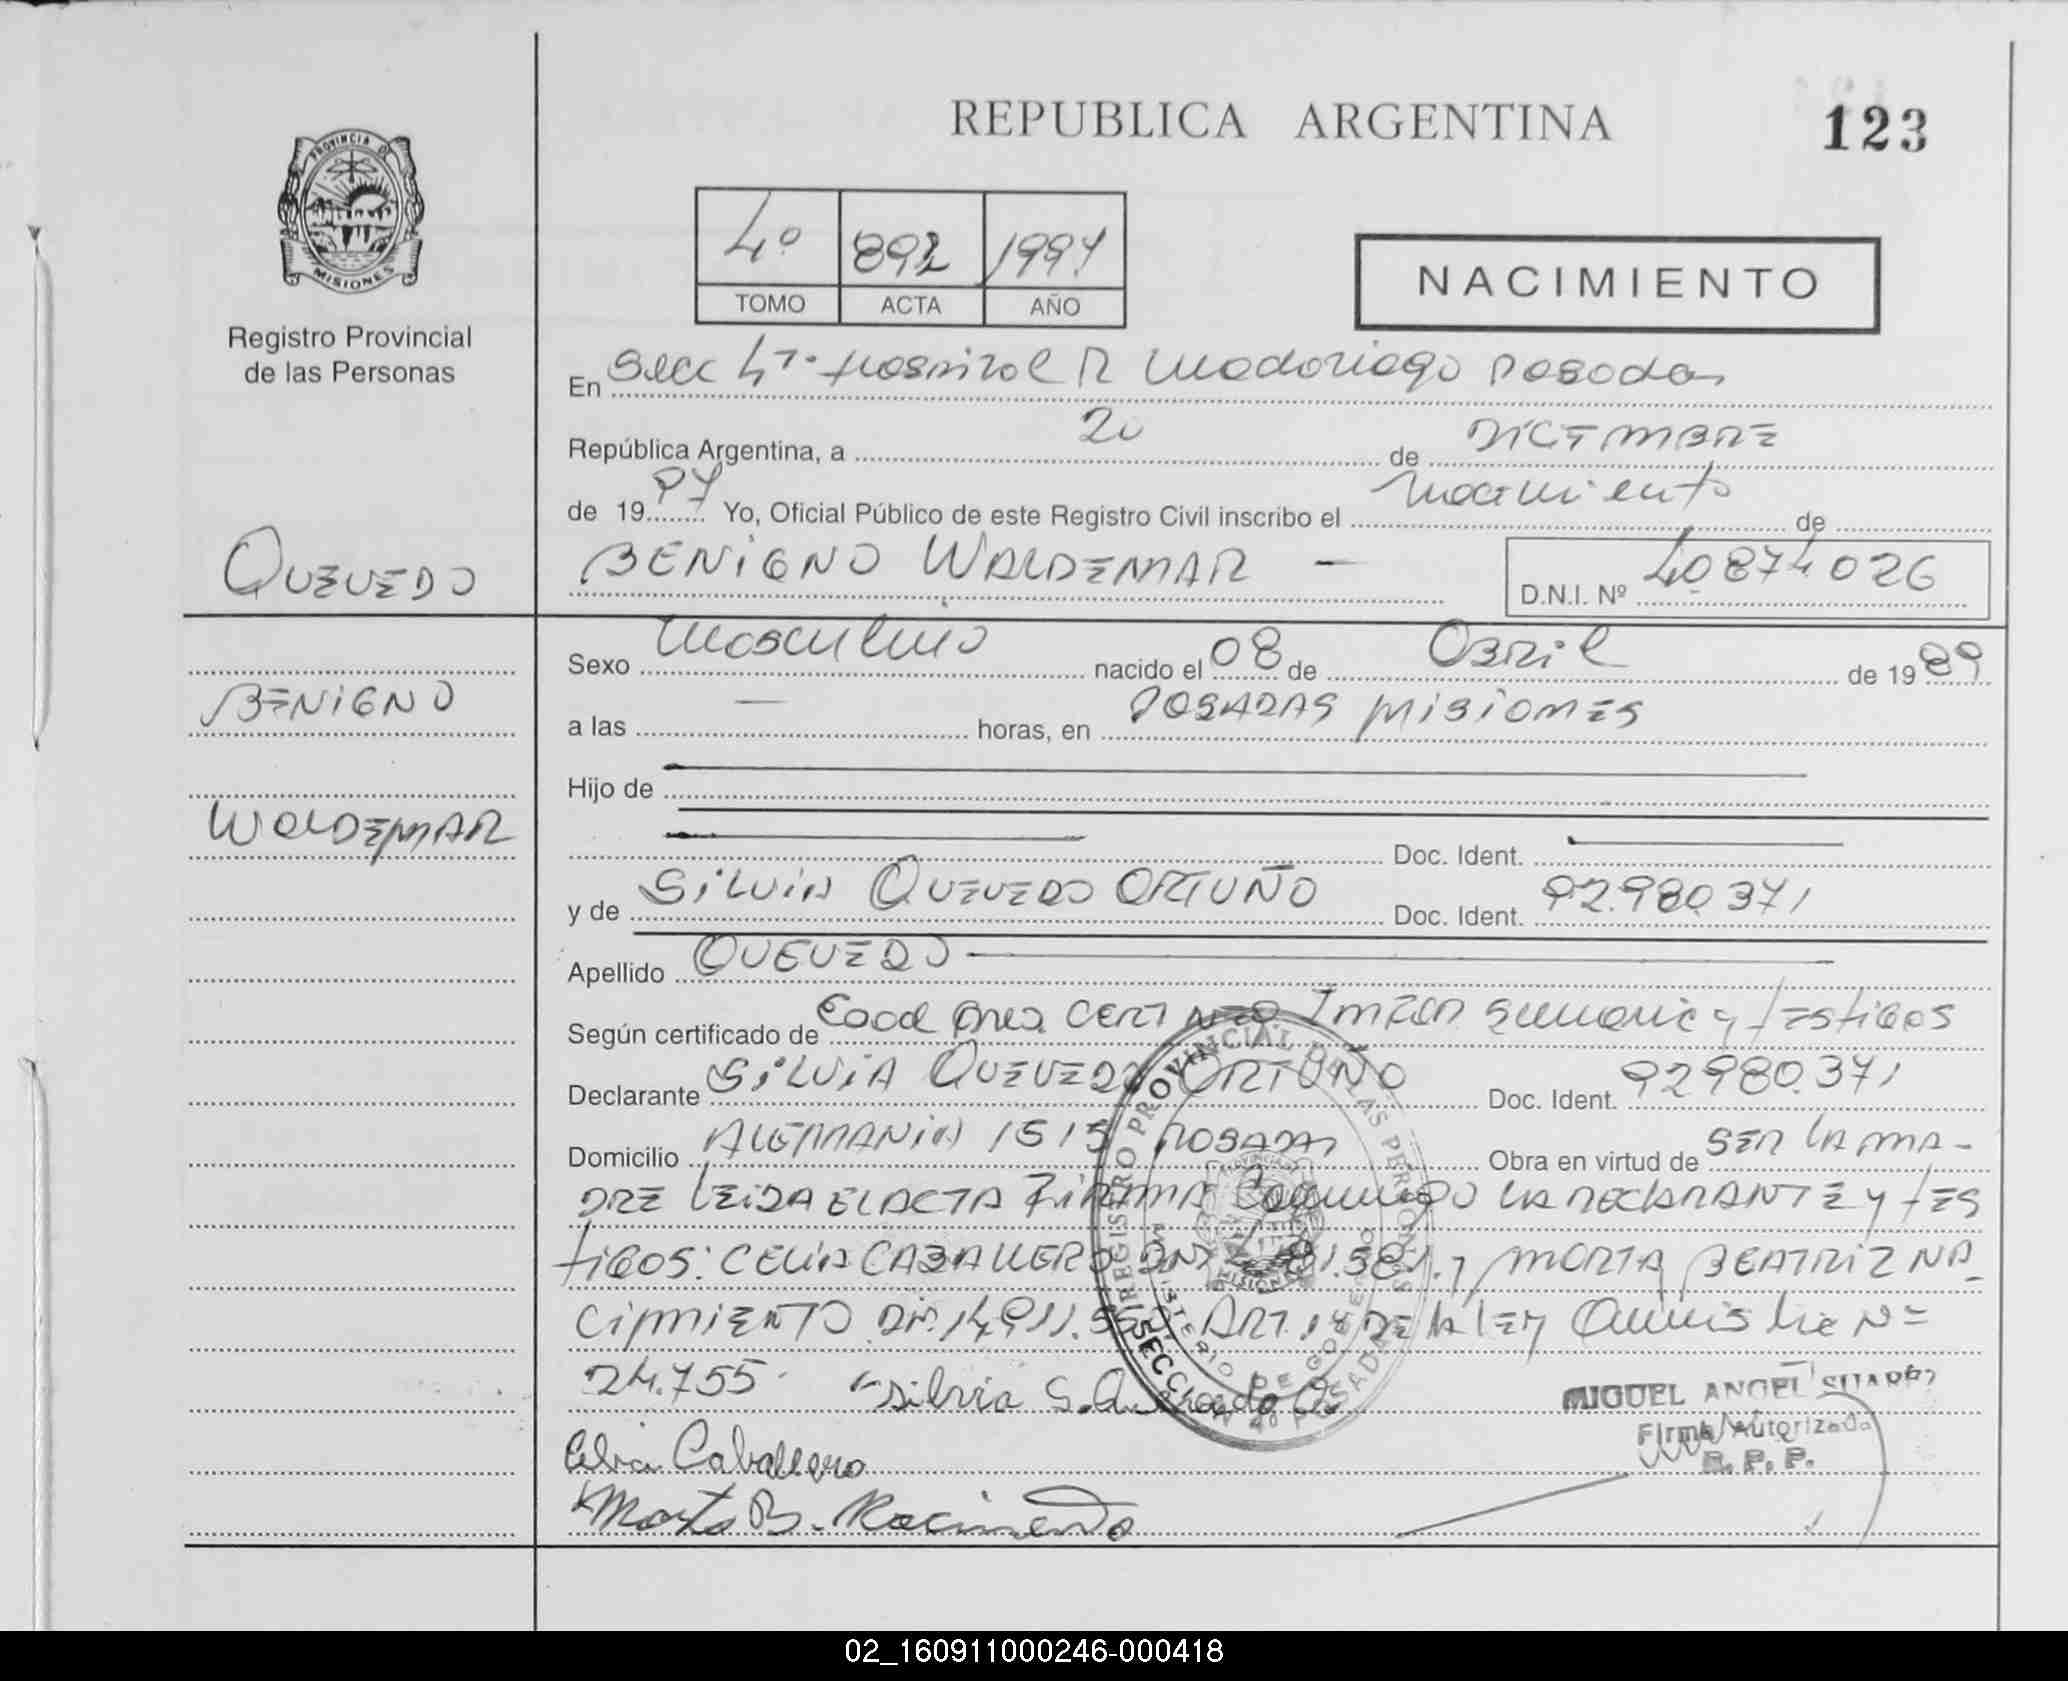 REPUBLICA ARGENTINA
123
PROVINCIA DE
MISIONES
Registro Provincial
de las Personas
4º 892 1997
TOMO ACTA AÑO
NACIMIENTO
En Secc 4ta. Hospital R Madariaga Posadas
República Argentina, a 20 de DICIEMBRE
de 1997 Yo, Oficial Público de este Registro Civil inscribo el Nacimiento de
QUEVEDO
BENIGNO WALDEMAR —
D.N.I. Nº 40874.026
Sexo Masculino nacido el 08 de Abril de 1989
BENIGNO
a las — horas, en POSADAS MISIONES
Hijo de
WALDEMAR
Doc. Ident.
y de SILVIA QUEVEDO ORTUÑO Doc. Ident. 92.980.371
Apellido QUEVEDO
Según certificado de sumaria y testigos
Declarante SILVIA QUEVEDO ORTUÑO Doc. Ident. 92980.371
Domicilio ALEMANIA 1515 POSADAS Obra en virtud de SER LA MA-
DRE LEIDA EL ACTA FIRMA Conmigo LA DECLARANTE y TES
TIGOS: CELIA CABALLERO y MARTA BEATRIZ NA-
CIMIENTO ART. DE LA LEY Nº
24.755. Silvia S. Quevedo O.
MIGUEL ANGEL SUAREZ
Firma Autorizada
R. P. P.
Celia Caballero
Marta B. Nacimiento
REGISTRO PROVINCIAL DE LAS PERSONAS
MINISTERIO DE GOBIERNO
SECCION 4º POSADAS
02_160911000246-000418